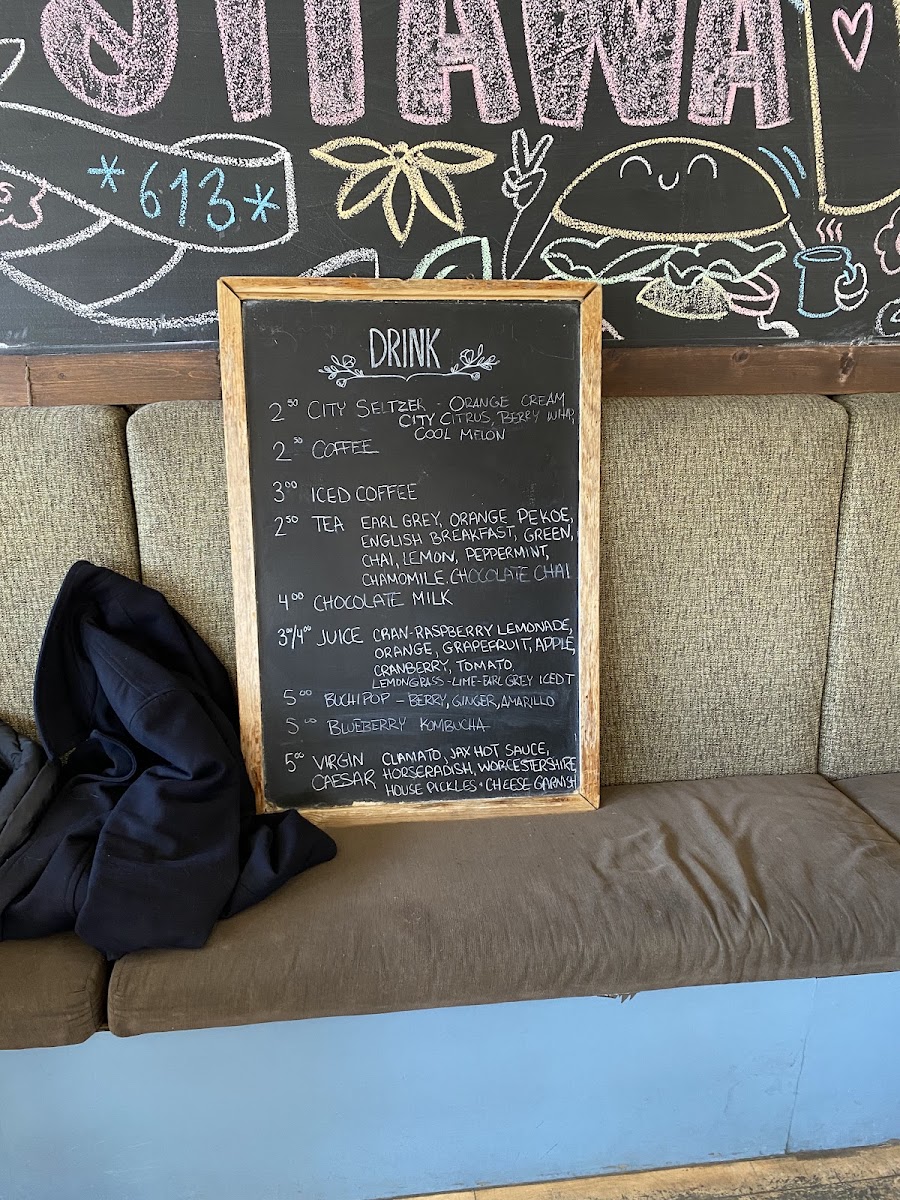 OTTAWA
*613*
DRINK
2⁵⁰ CITY SELTZER - ORANGE CREAM
CITY CITRUS, BERRY WHIP,
COOL MELON
2⁵⁰ COFFEE
3⁰⁰ ICED COFFEE
2⁵⁰ TEA EARL GREY, ORANGE PEKOE,
ENGLISH BREAKFAST, GREEN,
CHAI, LEMON, PEPPERMINT,
CHAMOMILE, CHOCOLATE CHAI
4⁰⁰ CHOCOLATE MILK
3⁰⁰/4⁰⁰ JUICE CRAN-RASPBERRY LEMONADE,
ORANGE, GRAPEFRUIT, APPLE,
CRANBERRY, TOMATO,
LEMONGRASS-LIME-EARL GREY ICED T
5⁰⁰ BUCHIPOP - BERRY, GINGER, AMARILLO
5⁰⁰ BLUEBERRY KOMBUCHA
5⁰⁰ VIRGIN CLAMATO, JAX HOT SAUCE,
CAESAR HORSERADISH, WORCESTERSHIRE
HOUSE PICKLES + CHEESE GARNISH